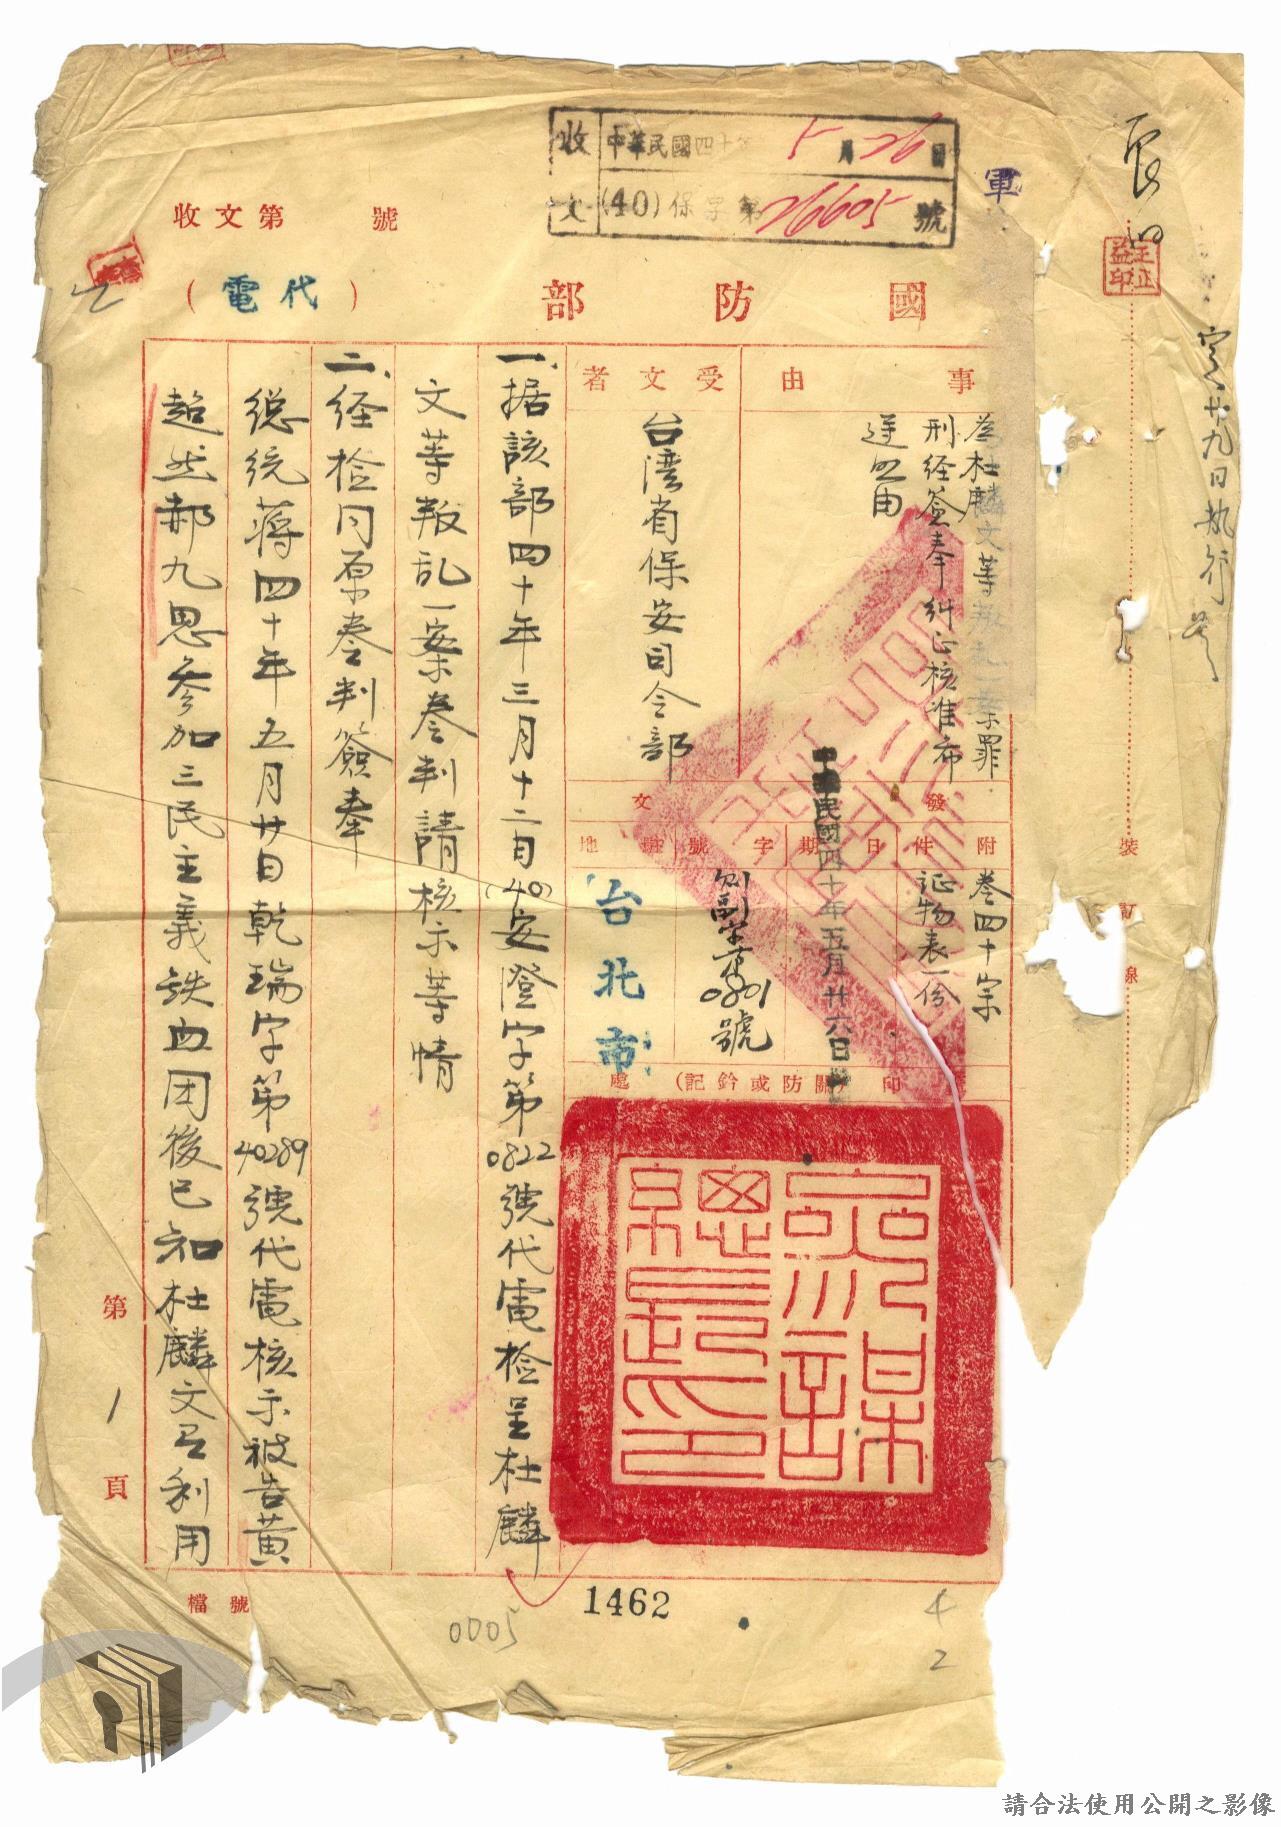 收文 中華民國四十年5月26日
(40)保字第26605號
軍
王正益印
定廿九日執行
收文第 號
國防部
(代電)
事由
為杜麟文等叛乱一案罪
刑经簽奉糾正核准希
遵照由
受文者
台湾省保安司令部
附件
卷四十宗
証物表一份
發文
日期
中華民國四十年五月廿六日
字號
0801號
駐地
台北市
印(關防或鈐記)處
參謀總長印
一、据該部四十年三月十二日(40)安澄字第0822號代電检呈杜麟
文等叛乱一案卷判請核示等情
二、经检同原卷判簽奉
總統蔣四十年五月廿日乾瑞字第40289號代電核示被告黃
超然郝九思參加三民主義铁血团後已知杜麟文有利用
第1頁
檔號
0005
1462
4
2
裝訂線
請合法使用公開之影像